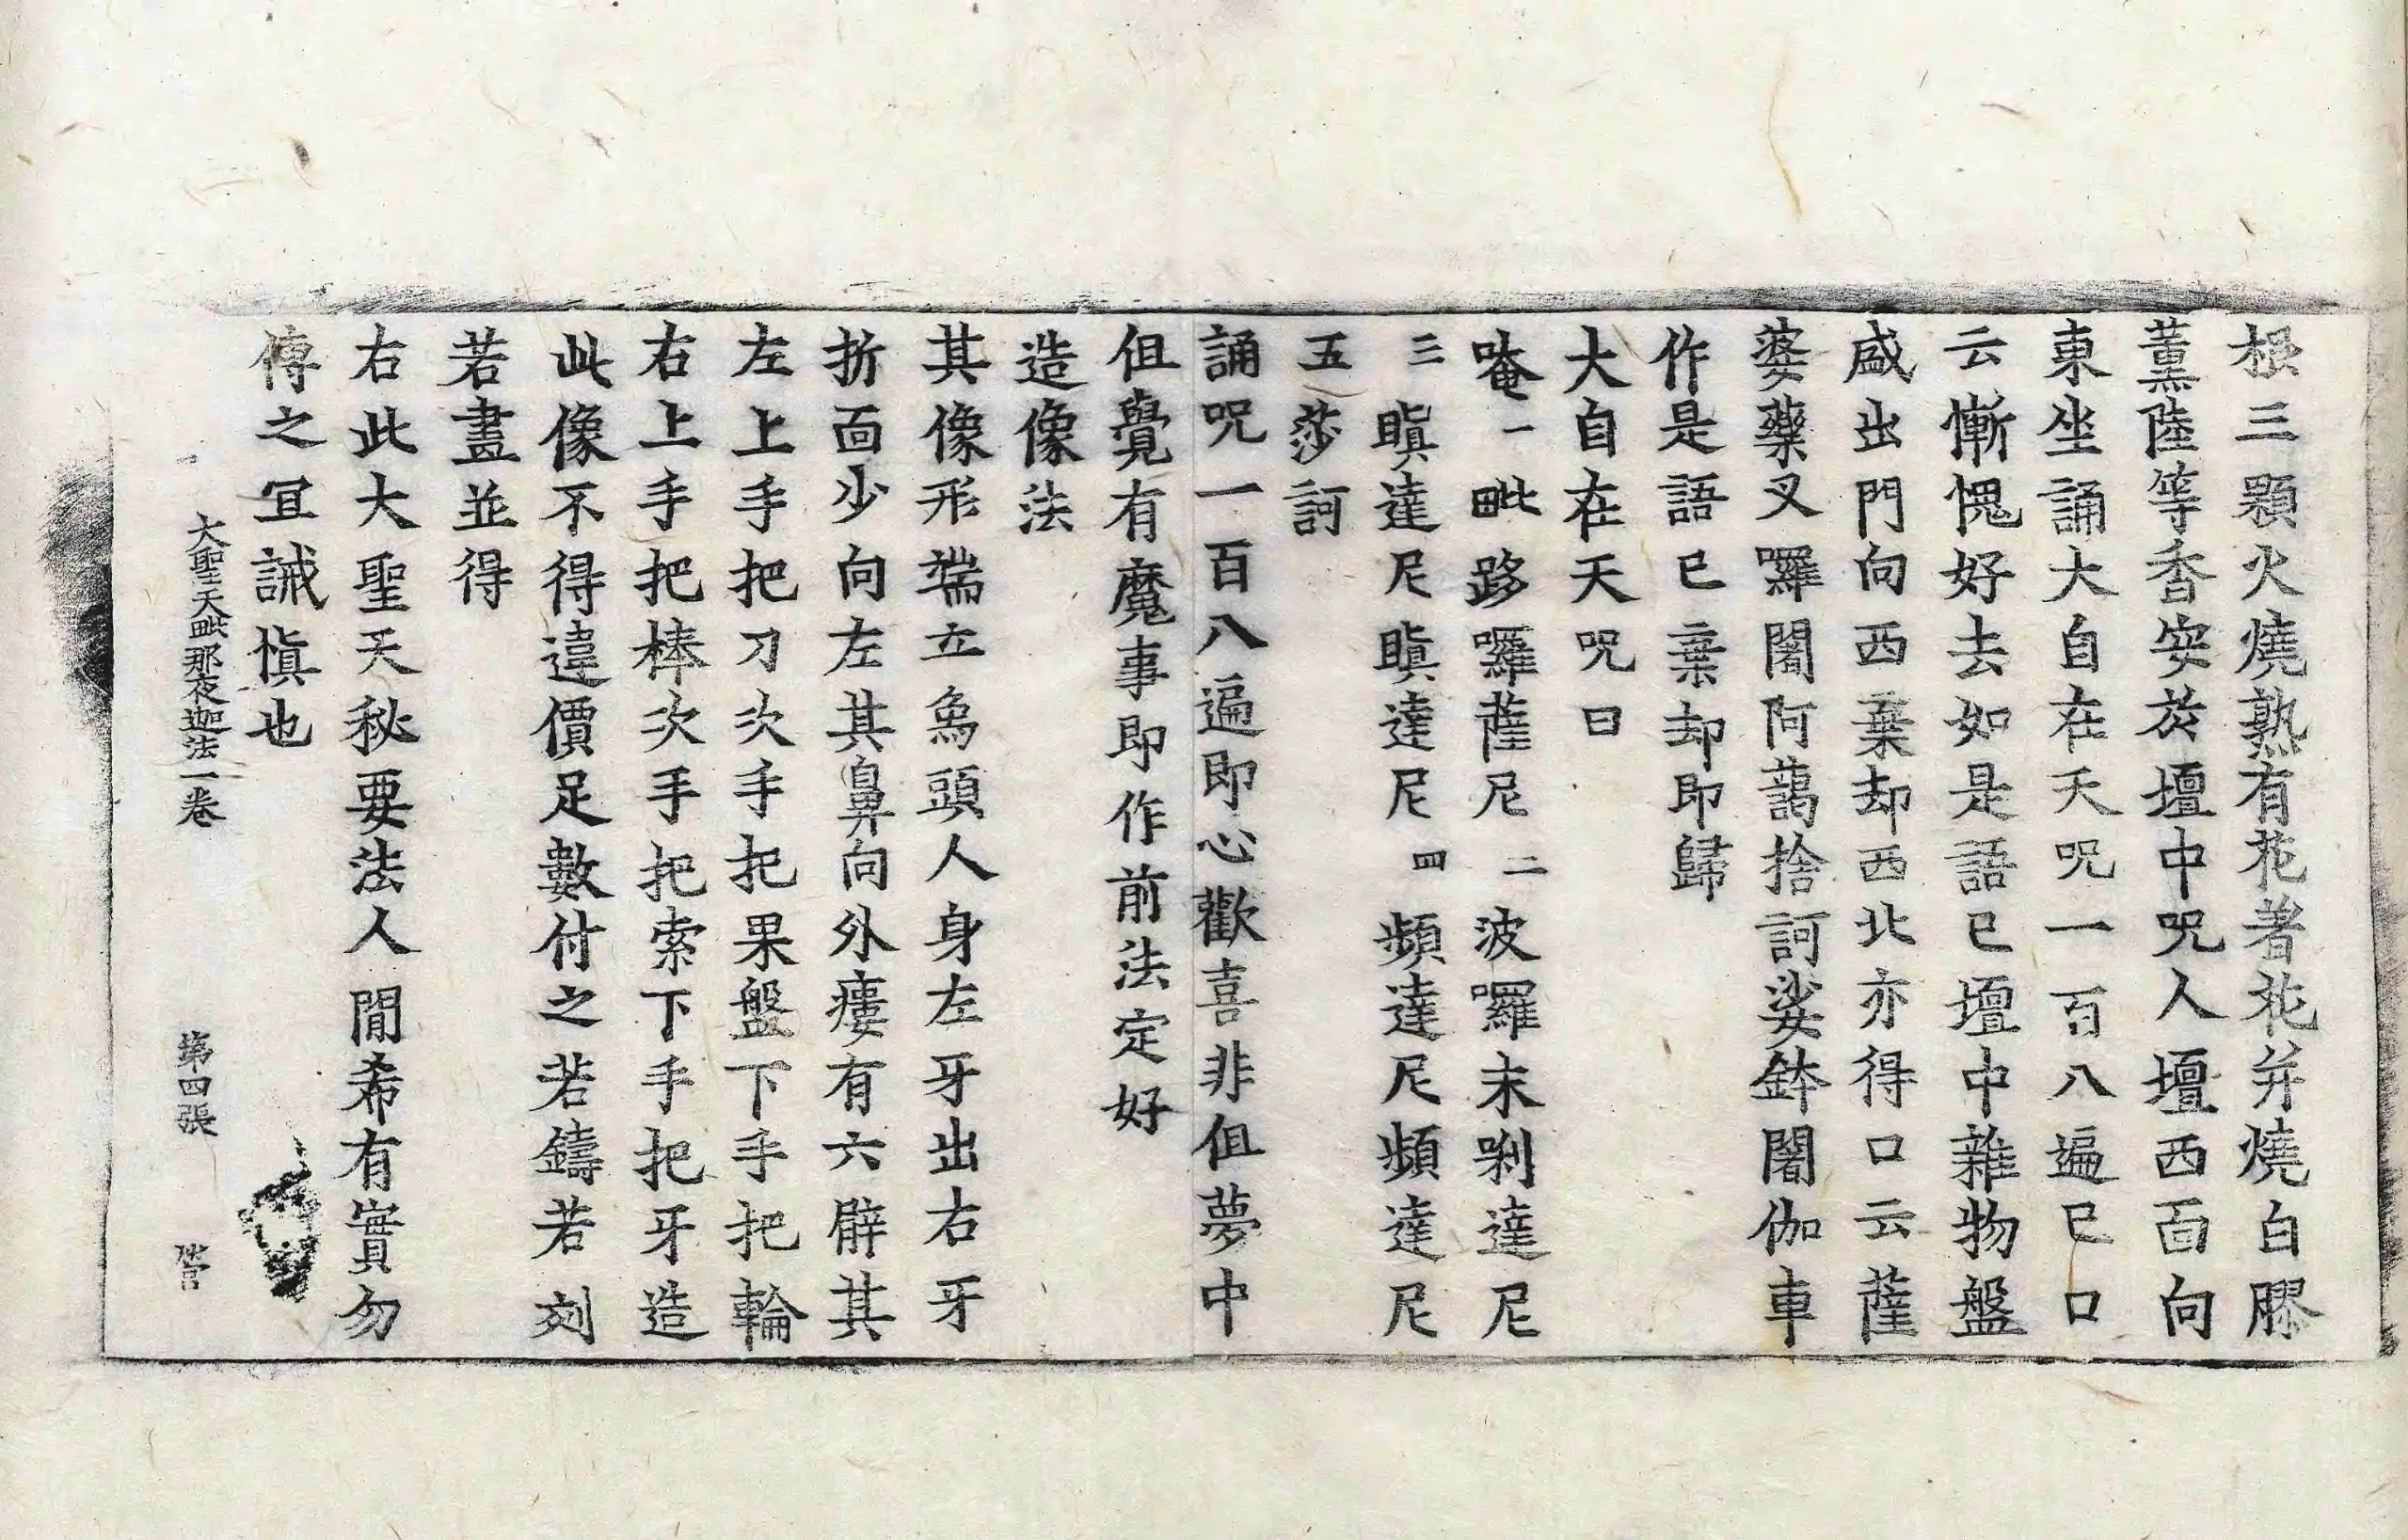 根三顆火燒熟有花著花并燒白膠
薰陸等香安於壇中呪人壇西面向
東坐誦大自在天呪一百八遍已口
云慚愧好去如是語已壇中雜物盤
盛出門向西棄却西北亦得口云薩
婆藥叉囉闍阿藹捨訶娑鉢闍伽車
作是語已棄却即歸
大自在天呪曰
唵一毗跢囉薩尼二波囉末剌達尼
三瞋達尼瞋達尼四頻達尼頻達尼
五莎訶
誦呪一百八遍即心歡喜非但夢中
但覺有魔事即作前法定好
造像法
其像形端立象頭人身左牙出右牙
折面少向左其鼻向外瘻有六臂其
左上手把刀次手把果盤下手把輪
右上手把棒次手把索下手把牙造
此像不得違價足數付之若鑄若刻
若畫並得
右此大聖天秘要法人間希有實勿
傳之宜誡慎也
大聖天毗那夜迦法一卷 第四張